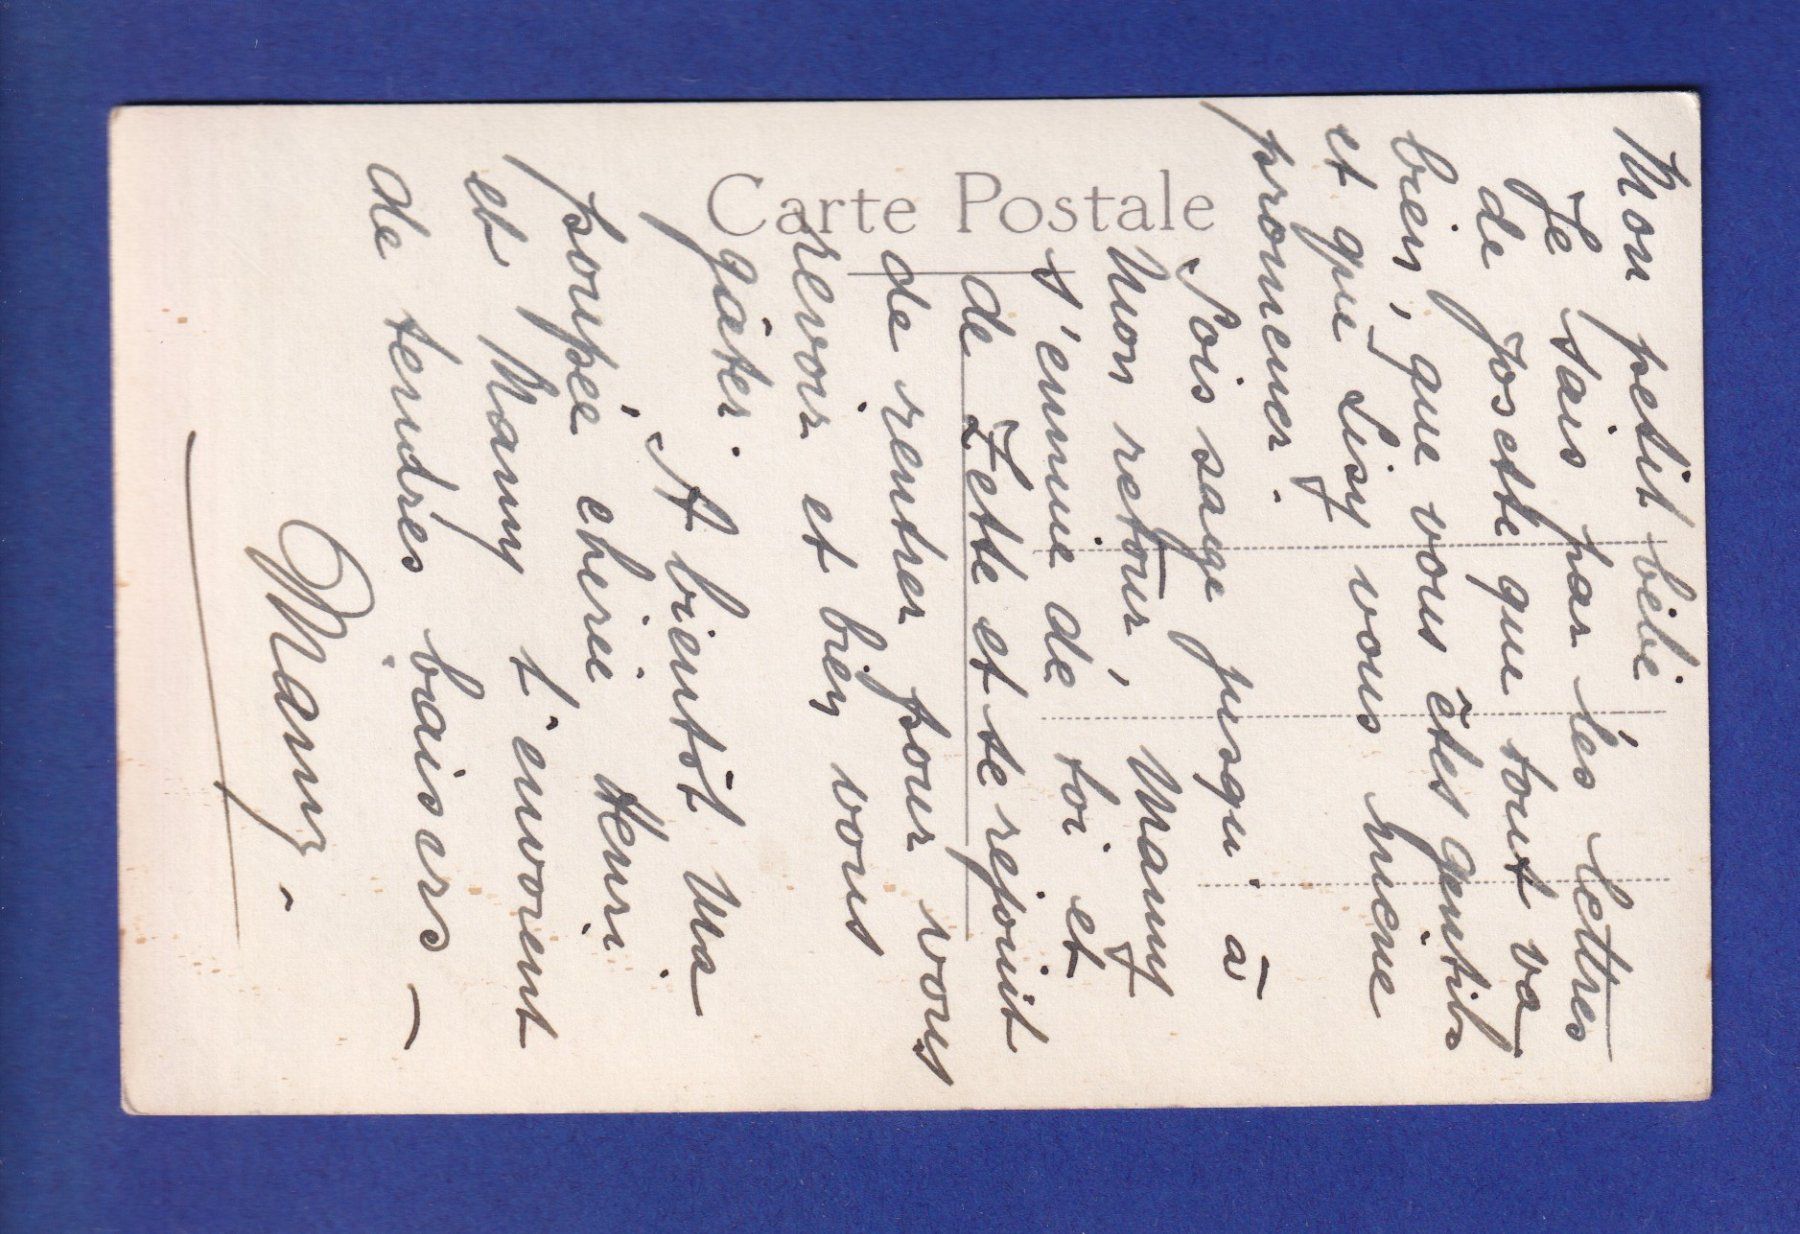 Carte Postale
Mon petit bébé
Je sais par les lettres
de Josette que tout va
bien, que vous êtes gentils
et que Lisy vous mène
promener.
Sois sage jusqu'à
mon retour, Many
s'ennuie de toi et
de Zette et se réjouit
de rentrer pour vous
revoir et bien vous
gâter.
A bientôt ma
poupée chérie Henri
et Many t'envoient
de tendres baisers —
Many.